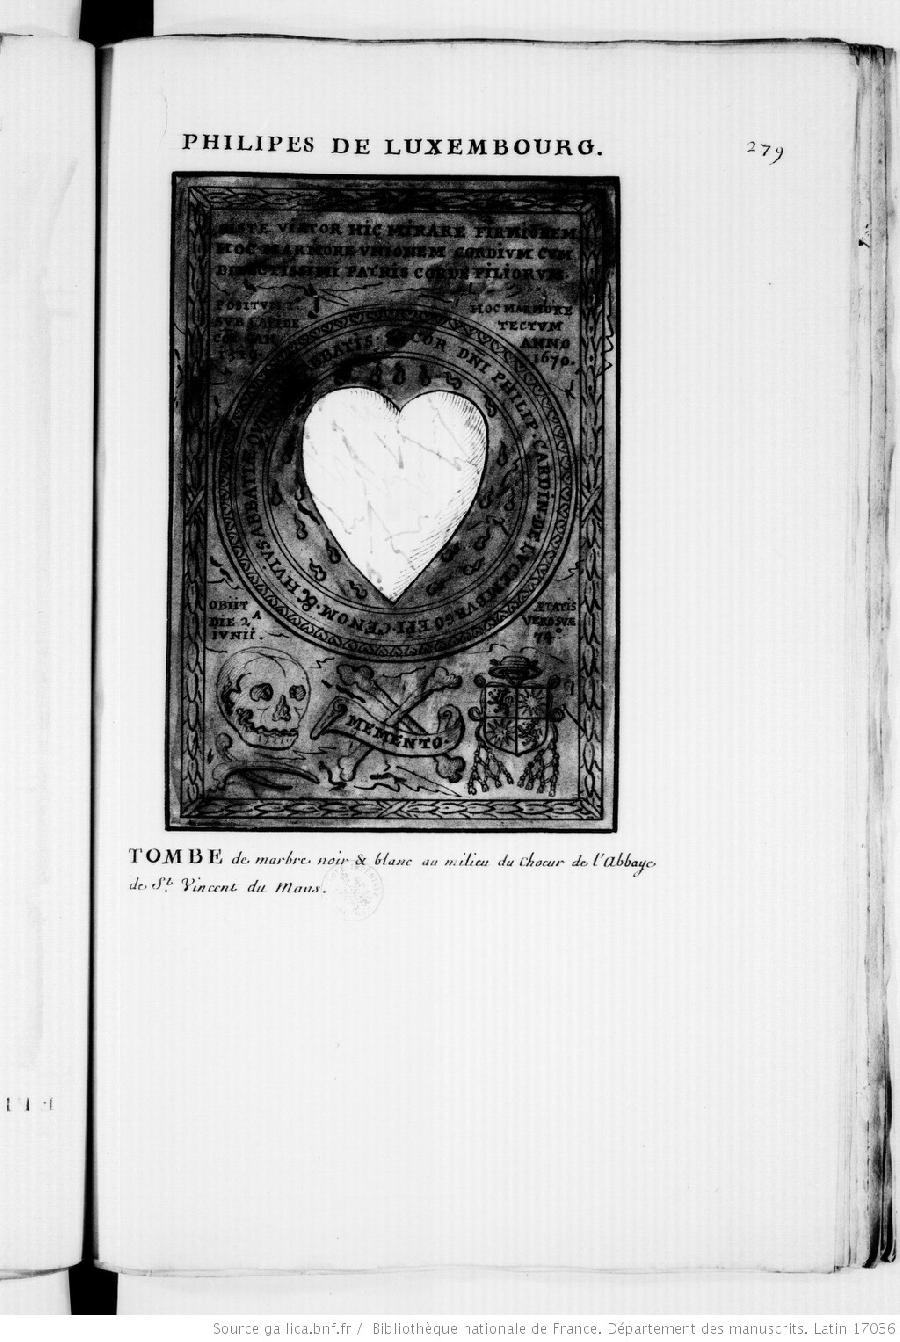 PHILIPES DE LUXEMBOURG.
279
SISTE VIATOR HIC MIRARE FIRMIOREM
HOC MARMORE VNIONEM CORDIVM CVM
DILECTISSIMI PATRIS CORDE FILIORVM.
POSITVM
SVB
HOC MARMORE
TECTVM
ANNO
1670.
COR DNI PHILIP. CARDIN. DE LVCEMBVRGO EPI CENOM. & HVIVS ABBATIÆ ABBATIS
OBIIT
DIE 2A
IVNII.
ÆTATIS
VERO SVÆ
74°.
MEMENTO.
TOMBE de marbre noir & blanc au milieu du Choeur de l'Abbaye
de St. Vincent du Mans.
Source gallica.bnf.fr / Bibliothèque nationale de France. Département des manuscrits. Latin 17036